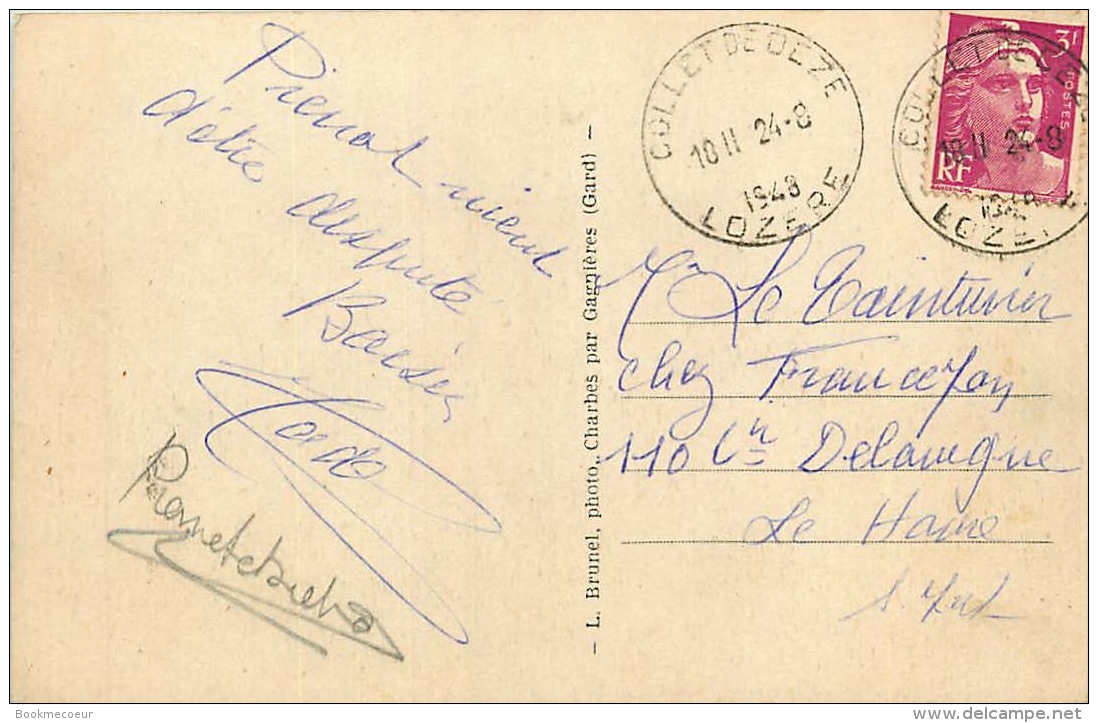 Pierrot vient
d'être desputé
Baisers
COLLET DE DEZE
18 H 24-8
1948
LOZERE
3F
POSTES
RF
COLLET DE DEZE
18 H 24-8
1948
LOZERE
– L. Brunel, photo, Charbes par Gagnières (Gard) –
Mr Le Tainturier
chez Francezon
110 Cr Delavigne
Le Havre
S Inf
Bookmecoeur
www.delcampe.net